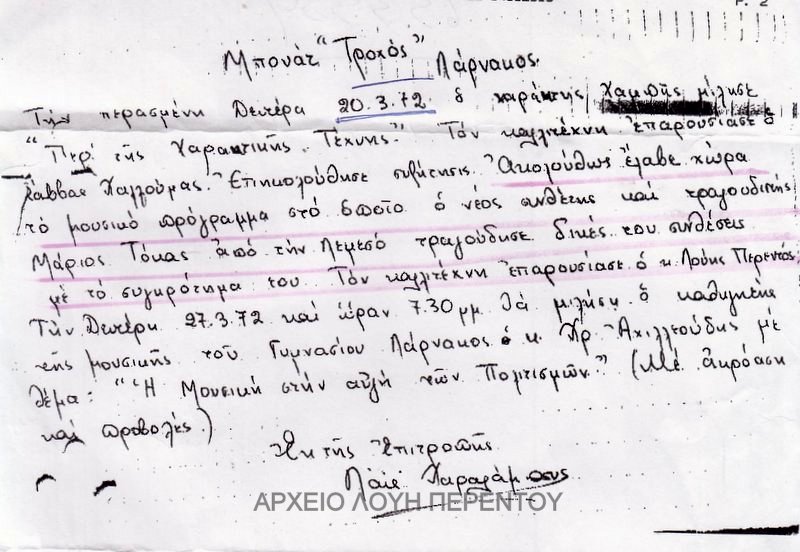 Ρ. 2
Μπουάτ "Τροχός" Λάρνακος.
Την περασμένη Δευτέρα 20.3.72 ὁ χαράκτης Χαμπῆς μίλησε
"Περί τῆς Χαρακτικῆς Τέχνης." Τόν καλλιτέχνη ἐπαρουσίασε ὁ
Καλλούμας. Ἐπηκολούθησε συζήτησις. Ἀκολούθως ἔλαβε χώρα
τό μουσικό πρόγραμμα στό ὁποῖο ὁ νέος συνθέτης καί τραγουδιστής
Μάριος Τόκας ἀπό τήν Λεμεσό τραγούδησε δικές του συνθέσεις
μέ τό συγκρότημα του. Τόν καλλιτέχνη ἐπαρουσίασε ὁ κ. Λούης Περεντός,
Τήν Δευτέρη 27.3.72 καί ὥραν 7.30 μμ. θά μιλήση ὁ καθηγητής
τῆς μουσικῆς τοῦ Γυμνασίου Λάρνακος ὁ κ. Χρ. Ἀχιλλεούδης μέ
θέμα: "Ἡ Μουσική στήν αὐγή τῶν Πολιτισμῶν." (Μέ ἀκρόαση
καί προβολές)
Ἐκ τῆς Ἐπιτροπῆς
Χαραλάμπους
ΑΡΧΕΙΟ ΛΟΥΗ ΠΕΡΕΝΤΟΥ